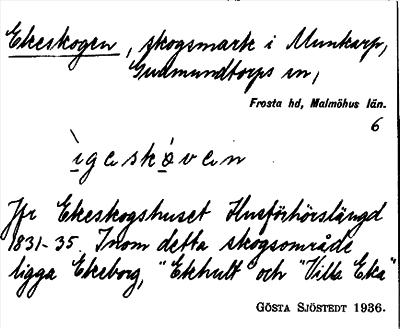 Ekeskogen, skogsmark i Munkarp,
Gudmundtorps sn,
Frosta hd, Malmöhus län.
6
ìgeskǫ́ven
Jfr Ekeskogshuset Husförhörslängd
1831-35. Inom detta skogsområde
ligga Ekeborg, "Ekhult" och "Villa Eka"
GÖSTA SJÖSTEDT 1936.